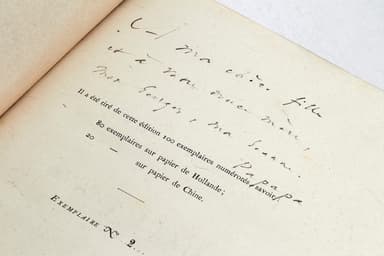 ma chère fille
et à mon
mes Georges,
Papa
Il a été tiré de cette édition 100 exemplaires numérotés, savoir :
80 exemplaires sur papier de Hollande ;
20 — sur papier de Chine.
EXEMPLAIRE N° 2...